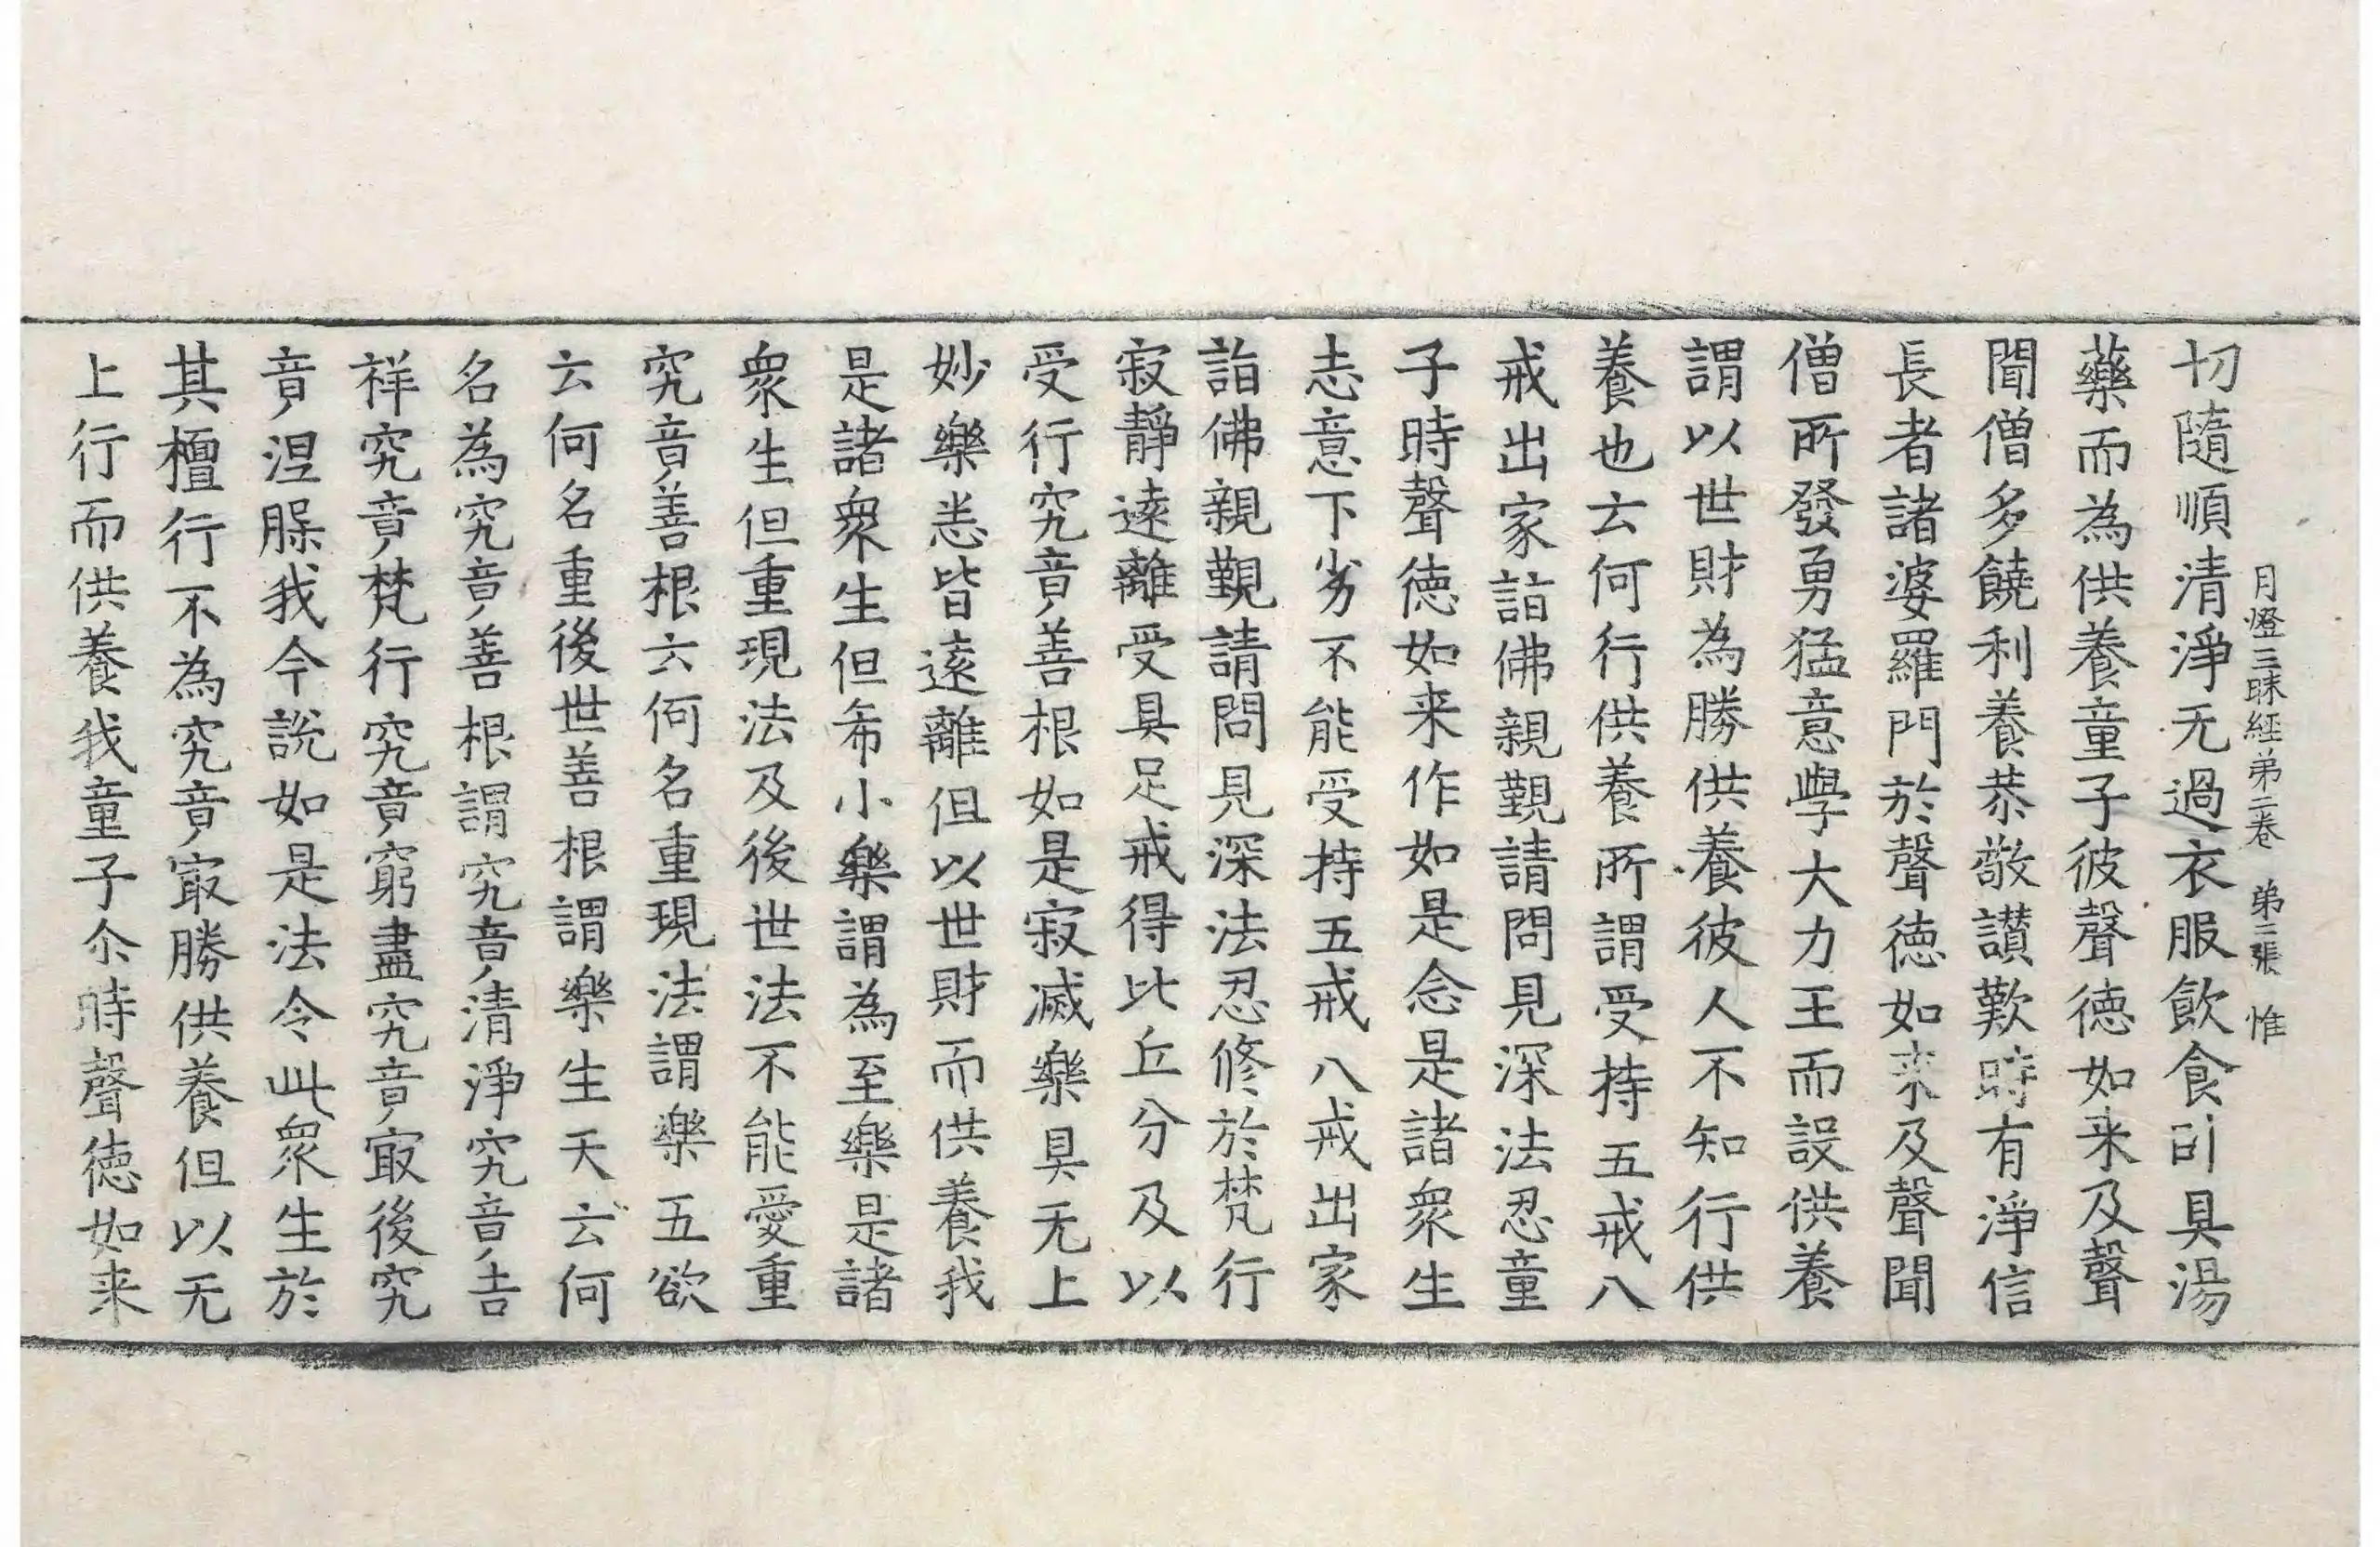 月燈三昧経弟二卷 弟三張 惟
切隨順清淨无過衣服飲食卧具湯
藥而為供養童子彼聲德如来及聲
聞僧多饒利養恭敬讃歎時有淨信
長者諸婆羅門於聲德如来及聲聞
僧所發勇猛意學大力王而設供養
謂以世財為勝供養彼人不知行供
養也云何行供養所謂受持五戒八
戒出家詣佛親覲請問見深法忍童
子時聲德如来作如是念是諸衆生
志意下劣不能受持五戒八戒出家
詣佛親覲請問見深法忍修於梵行
寂靜遠離受具足戒得比丘分及以
受行究竟善根如是寂滅樂具无上
妙樂悉皆遠離但以世財而供養我
是諸衆生但希小樂謂為至樂是諸
衆生但重現法及後世法不能愛重
究竟善根云何名重現法謂樂五欲
云何名重後世善根謂樂生天云何
名為究竟善根謂究竟清淨究竟吉
祥究竟梵行究竟窮盡究竟㝡後究
竟涅縏我今說如是法令此衆生於
其檀行不為究竟㝡勝供養但以无
上行而供養我童子尒時聲德如来